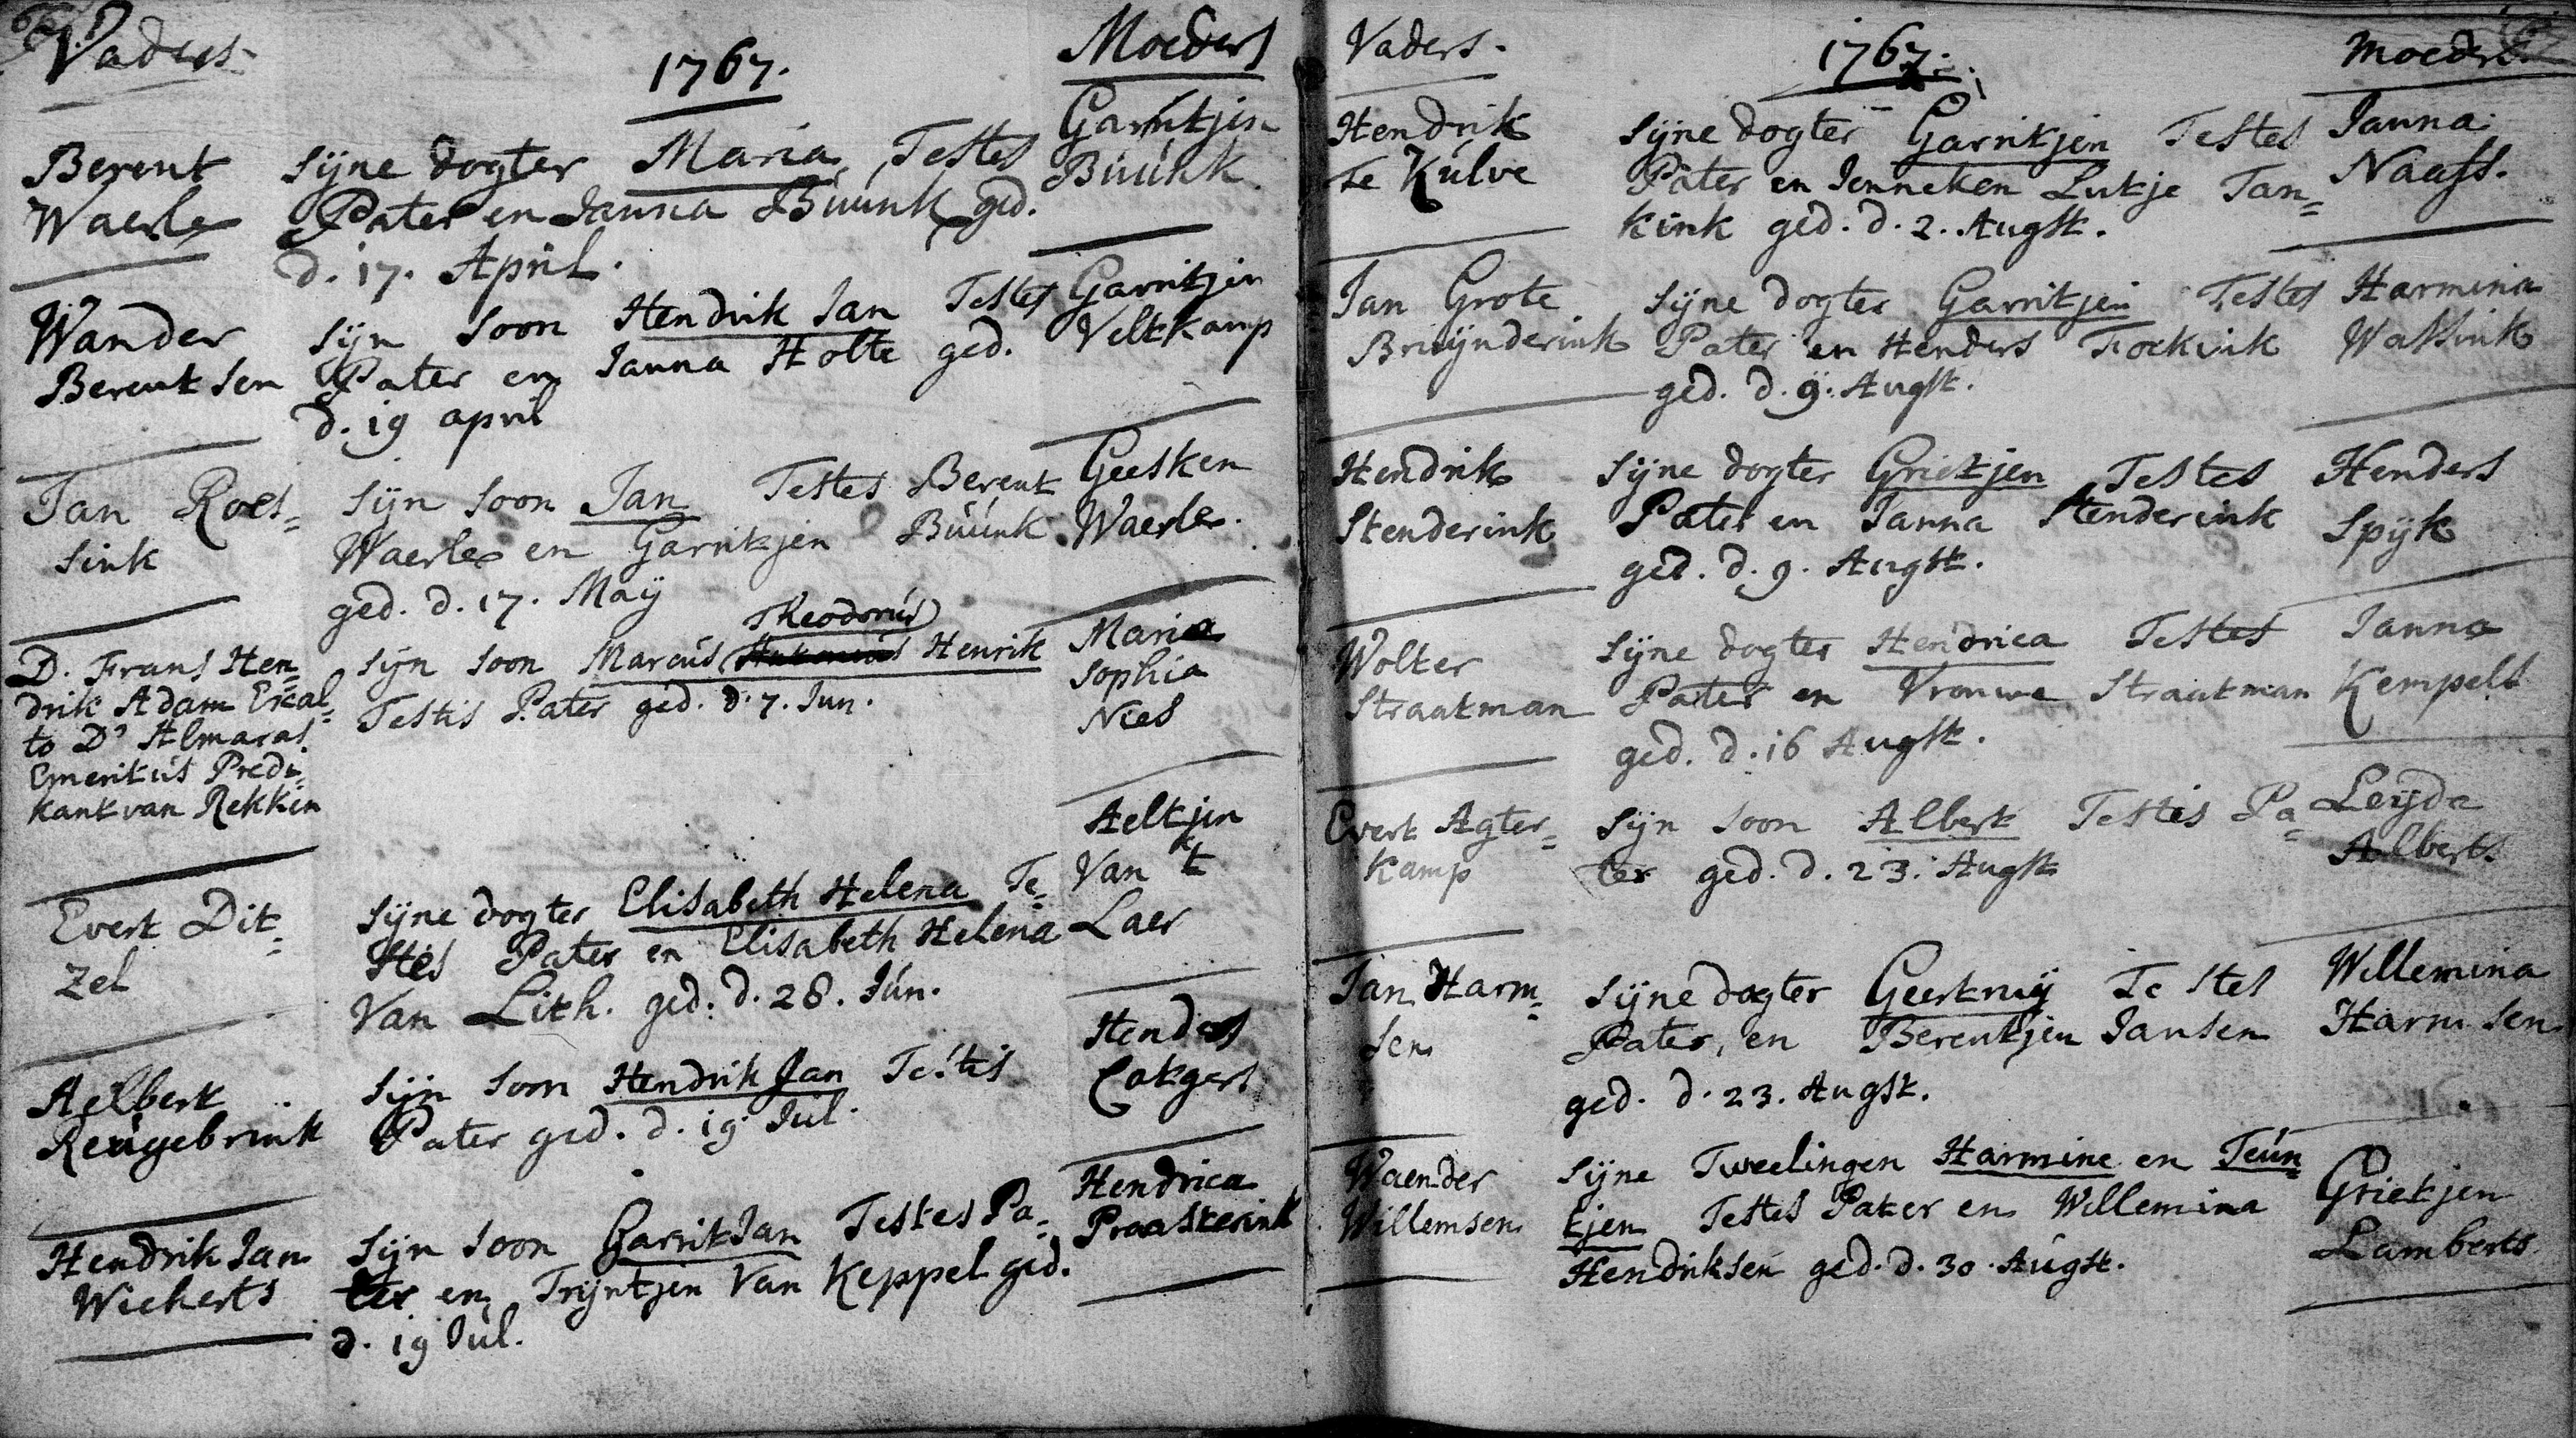 Vaders
1767.
Moeders
Berent
Waerle
Sijne dogter Maria, Testes
Pater en Janna Buúnk ged.
d. 17. April.
Garritjen
Buúnk
Wander
Berentsen
Sijn Soon Hendrik Jan Testes
Pater en Janna Holte ged.
d. 19 april
Garritjen
Veltkamp
Jan Roes=
sink
Sijn Soon Jan Testes Berent
Waerle en Garritjen Buúnk
ged. d. 17. Maÿ
Geesken
Waerle.
D. Frans Hen=
drik Adam Escal=
to D' Almaras.
Emeritús Predi=
kant van Rekken
Theodorús
Sijn Soon Marcús Antonius Henrik
Testis Pater ged. d. 7. Jun.
Maria
Sophia
Nies
Evert Dit=
zel
Sijne dogter Elisabeth Helena Te=
stes Pater en Elisabeth Helena
Van Lith. ged. d. 28. Jún.
Aeltjen
Van 't
Laer
Aelbert
Reúgebrink
Sijn Soon Hendrik Jan Testis
Pater ged. d. 19 Júl.
Henders
Hendrik Jan
Wicherts
Sijn Soon Garrit Jan Testes Pa=
ter en Trijntjen Van Keppel ged.
d. 19 Júl.
Hendrica
Praasterink
Vaders.
1767.
Moeders
Hendrik
te Kúlve
Sijne dogter Garritjen Testes
Pater en Jenneken Lutje Tan=
kink ged. d. 2. Augst.
Janna
Naass.
Jan Grote
Bruijnderink
Sijne dogter Garritjen Testes
Pater en Henders Fockink
ged. d. 9. Augst.
Harmina
Wassink
Hendrik
Stenderink
Sijne dogter Grietjen Testes
Pater en Janna Stenderink
ged. d. 9. Augst.
Henders
Spijk
Wolter
Straatman
Sijne dogter Hendrica Testes
Pater en Vrouwe Straatman
ged. d. 16 Augst.
Janna
Kempels
Evert Agter=
kamp
Sijn Soon Albert Testis Pa=
ter ged. d. 23. Augst
Leijda
Alberts
Jan Harm=
sen
Sijne dogter Geertruij Testes
Pater, en Berentjen Jansen
ged. d. 23. Augst.
Willemina
Harmsen
Waender
Willemsen
Sijne Tweelingen Harmine en Teún=
tjen Testes Pater en Willemina
Hendriksen ged. d. 30. Aúgst.
Grietjen
Lamberts